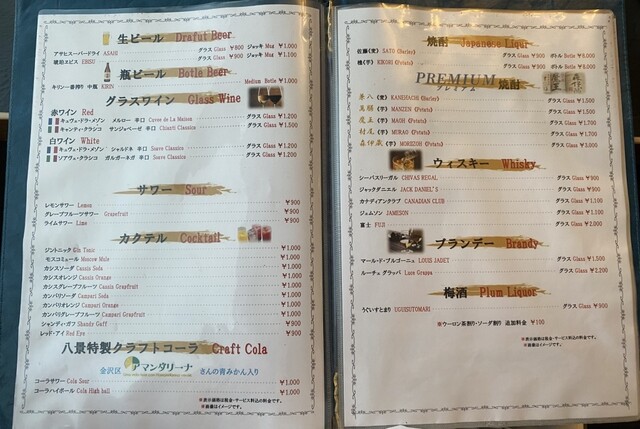 生ビール Drafut Beer
アサヒスーパードライ ASAHI グラス Glass ¥800 ジョッキ Mug ¥1.000
琥珀エビス EBISU グラス Glass ¥900 ジョッキ Mug ¥1.100
瓶ビール Botle Beer
キリン一番搾り 中瓶 KIRIN Medium Botle ¥1.000
グラスワイン Glass Wine
赤ワイン Red
キュヴェ・ドラ・メゾン メルロー 辛口 Cuvee de La Maison グラス Glass ¥1.200
キャンティ・クラシコ サンジョベーゼ 辛口 Chianti Classico グラス Glass ¥1.500
白ワイン White
キュヴェ・ドラ・メゾン シャルドネ 辛口 Suave Classico グラス Glass ¥1.200
ソアヴェ・クラシコ ガルガーネガ 辛口 Suave Classico グラス Glass ¥1.500
サワー Sour
レモンサワー Lemon ¥900
グレープフルーツサワー Grapefruit ¥900
ライムサワー Lime ¥900
カクテル Cocktail
ジントニック Gin Tonic ¥1.000
モスコミュール Moscow Mule ¥1.000
カシスソーダ Cassis Soda ¥1.000
カシスオレンジ Cassis Orange ¥1.000
カシスグレープフルーツ Cassis Grapfruit ¥1.000
カンパリソーダ Campari Soda ¥1.000
カンパリオレンジ Campari Orange ¥1.000
カンパリグレープフルーツ Campari Grapefruit ¥1.000
シャンディ・ガフ Shandy Gaff ¥900
レッド・アイ Red Eye ¥900
八景特製クラフトコーラ Craft Cola
金沢区 アマンダリーナ さんの青みかん入り
コーラサワー Cola Sour ¥1.000
コーラハイボール Cola High ball ¥1.000
※表示価格は税金・サービス料込の料金です。
※画像はイメージです。
焼酎 Japanese Liqur
佐藤(麦) SATO (Barley) グラス Glass ¥900 ボトル Botle ¥8.000
桷(芋) KIKORI (Potato) グラス Glass ¥900 ボトル Botle ¥8.000
PREMIUM 焼酎
プレミアム
兼八 KANEHACHI (Barley) グラス Glass ¥1.500
萬膳 MANZEN (Potato) グラス Glass ¥1.500
魔王 MAOH (Potato) グラス Glass ¥1.500
村尾 MURAO (Potato) グラス Glass ¥1.500
森伊蔵 (芋) MORIZOH (Potato) グラス Glass ¥1.500
ウィスキー Whisky
シーバスリーガル CHIVAS REGAL グラス Glass ¥900
ジャックダニエル JACK DANIEL'S グラス Glass ¥900
カナディアンクラブ CANADIAN CLUB グラス Glass ¥1,100
ジェムソン JAMESON グラス Glass ¥1,100
富士 FUJI グラス Glass ¥2,000
ブランデー Brandy
マール・ド・ブルゴーニュ LOUIS JADET グラス Glass ¥1,500
ルーチェ グラッパ Luce Grappa グラス Glass ¥2,200
梅酒 Plum Liquor
うぐいすとまり UGUISUTOMARI グラス Glass ¥900
※ウーロン茶割り・ソーダ割り 追加料金 ¥100
※表示価格は税金・サービス料込の料金です。
※画像はイメージです。